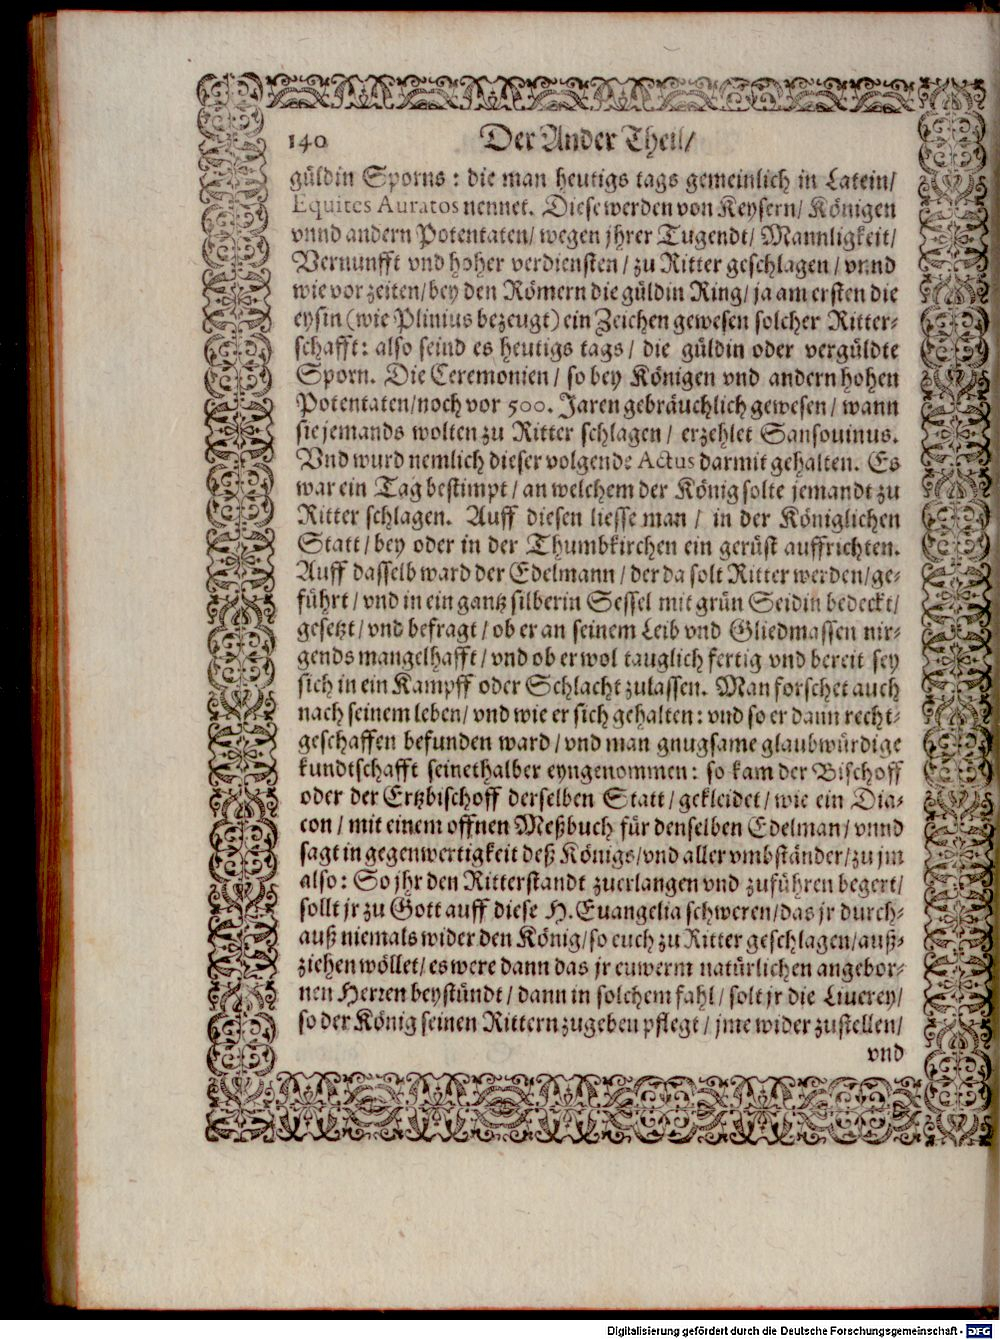 140 Der Ander Theil/
güldin Sporns : die man heutigs tags gemeinlich in Latein/
Equites Auratos nennet. Diese werden von Keysern/ Königen
vnnd andern Potentaten/ wegen jhrer Tugendt/ Mannligkeit/
Vernunfft vnd hoher verdiensten / zu Ritter geschlagen / vnnd
wie vor zeiten/ bey den Römern die güldin Ring/ ja am ersten die
eysin (wie Plinius bezeugt) ein Zeichen gewesen solcher Ritter-
schafft: also seind es heutigs tags / die güldin oder vergüldte
Sporn. Die Ceremonien / so bey Königen vnd andern hohen
Potentaten/ noch vor 500. Jaren gebräuchlich gewesen / wann
sie jemands wolten zu Ritter schlagen / erzehlet Sansouinus.
Vnd wurd nemlich dieser volgende Actus darmit gehalten. Es
war ein Tag bestimpt / an welchem der König solte jemandt zu
Ritter schlagen. Auff diesen liesse man / in der Königlichen
Statt / bey oder in der Thumbkirchen ein gerüst auffrichten.
Auff dasselb ward der Edelmann / der da solt Ritter werden/ ge-
führt / vnd in ein gantz silberin Sessel mit grün Seidin bedeckt/
gesetzt / vnd befragt / ob er an seinem Leib vnd Gliedmassen nir-
gends mangelhafft / vnd ob er wol tauglich fertig vnd bereit sey
sich in ein Kampff oder Schlacht zulassen. Man forschet auch
nach seinem leben/ vnd wie er sich gehalten : vnd so er dann recht-
geschaffen befunden ward / vnd man gnugsame glaubwürdige
kundtschafft seinethalber eyngenommen : so kam der Bischoff
oder der Ertzbischoff derselben Statt / gekleidet / wie ein Dia-
con / mit einem offnen Meßbuch für denselben Edelman / vnnd
sagt in gegenwertigkeit deß Königs/ vnd aller vmbständer/ zu jm
also : So jhr den Ritterstandt zuerlangen vnd zuführen begert/
sollt jr zu Gott auff diese H. Euangelia schweren/ das jr durch-
auß niemals wider den König/ so euch zu Ritter geschlagen/ auß-
ziehen wöllet/ es were dann das jr euwerm natürlichen angebor-
nen Herren beystündt / dann in solchem fahl / solt jr die Liuerey/
so der König seinen Rittern zugeben pflegt / jme wider zustellen/
vnd
Digitalisierung gefördert durch die Deutsche Forschungsgemeinschaft - DFG